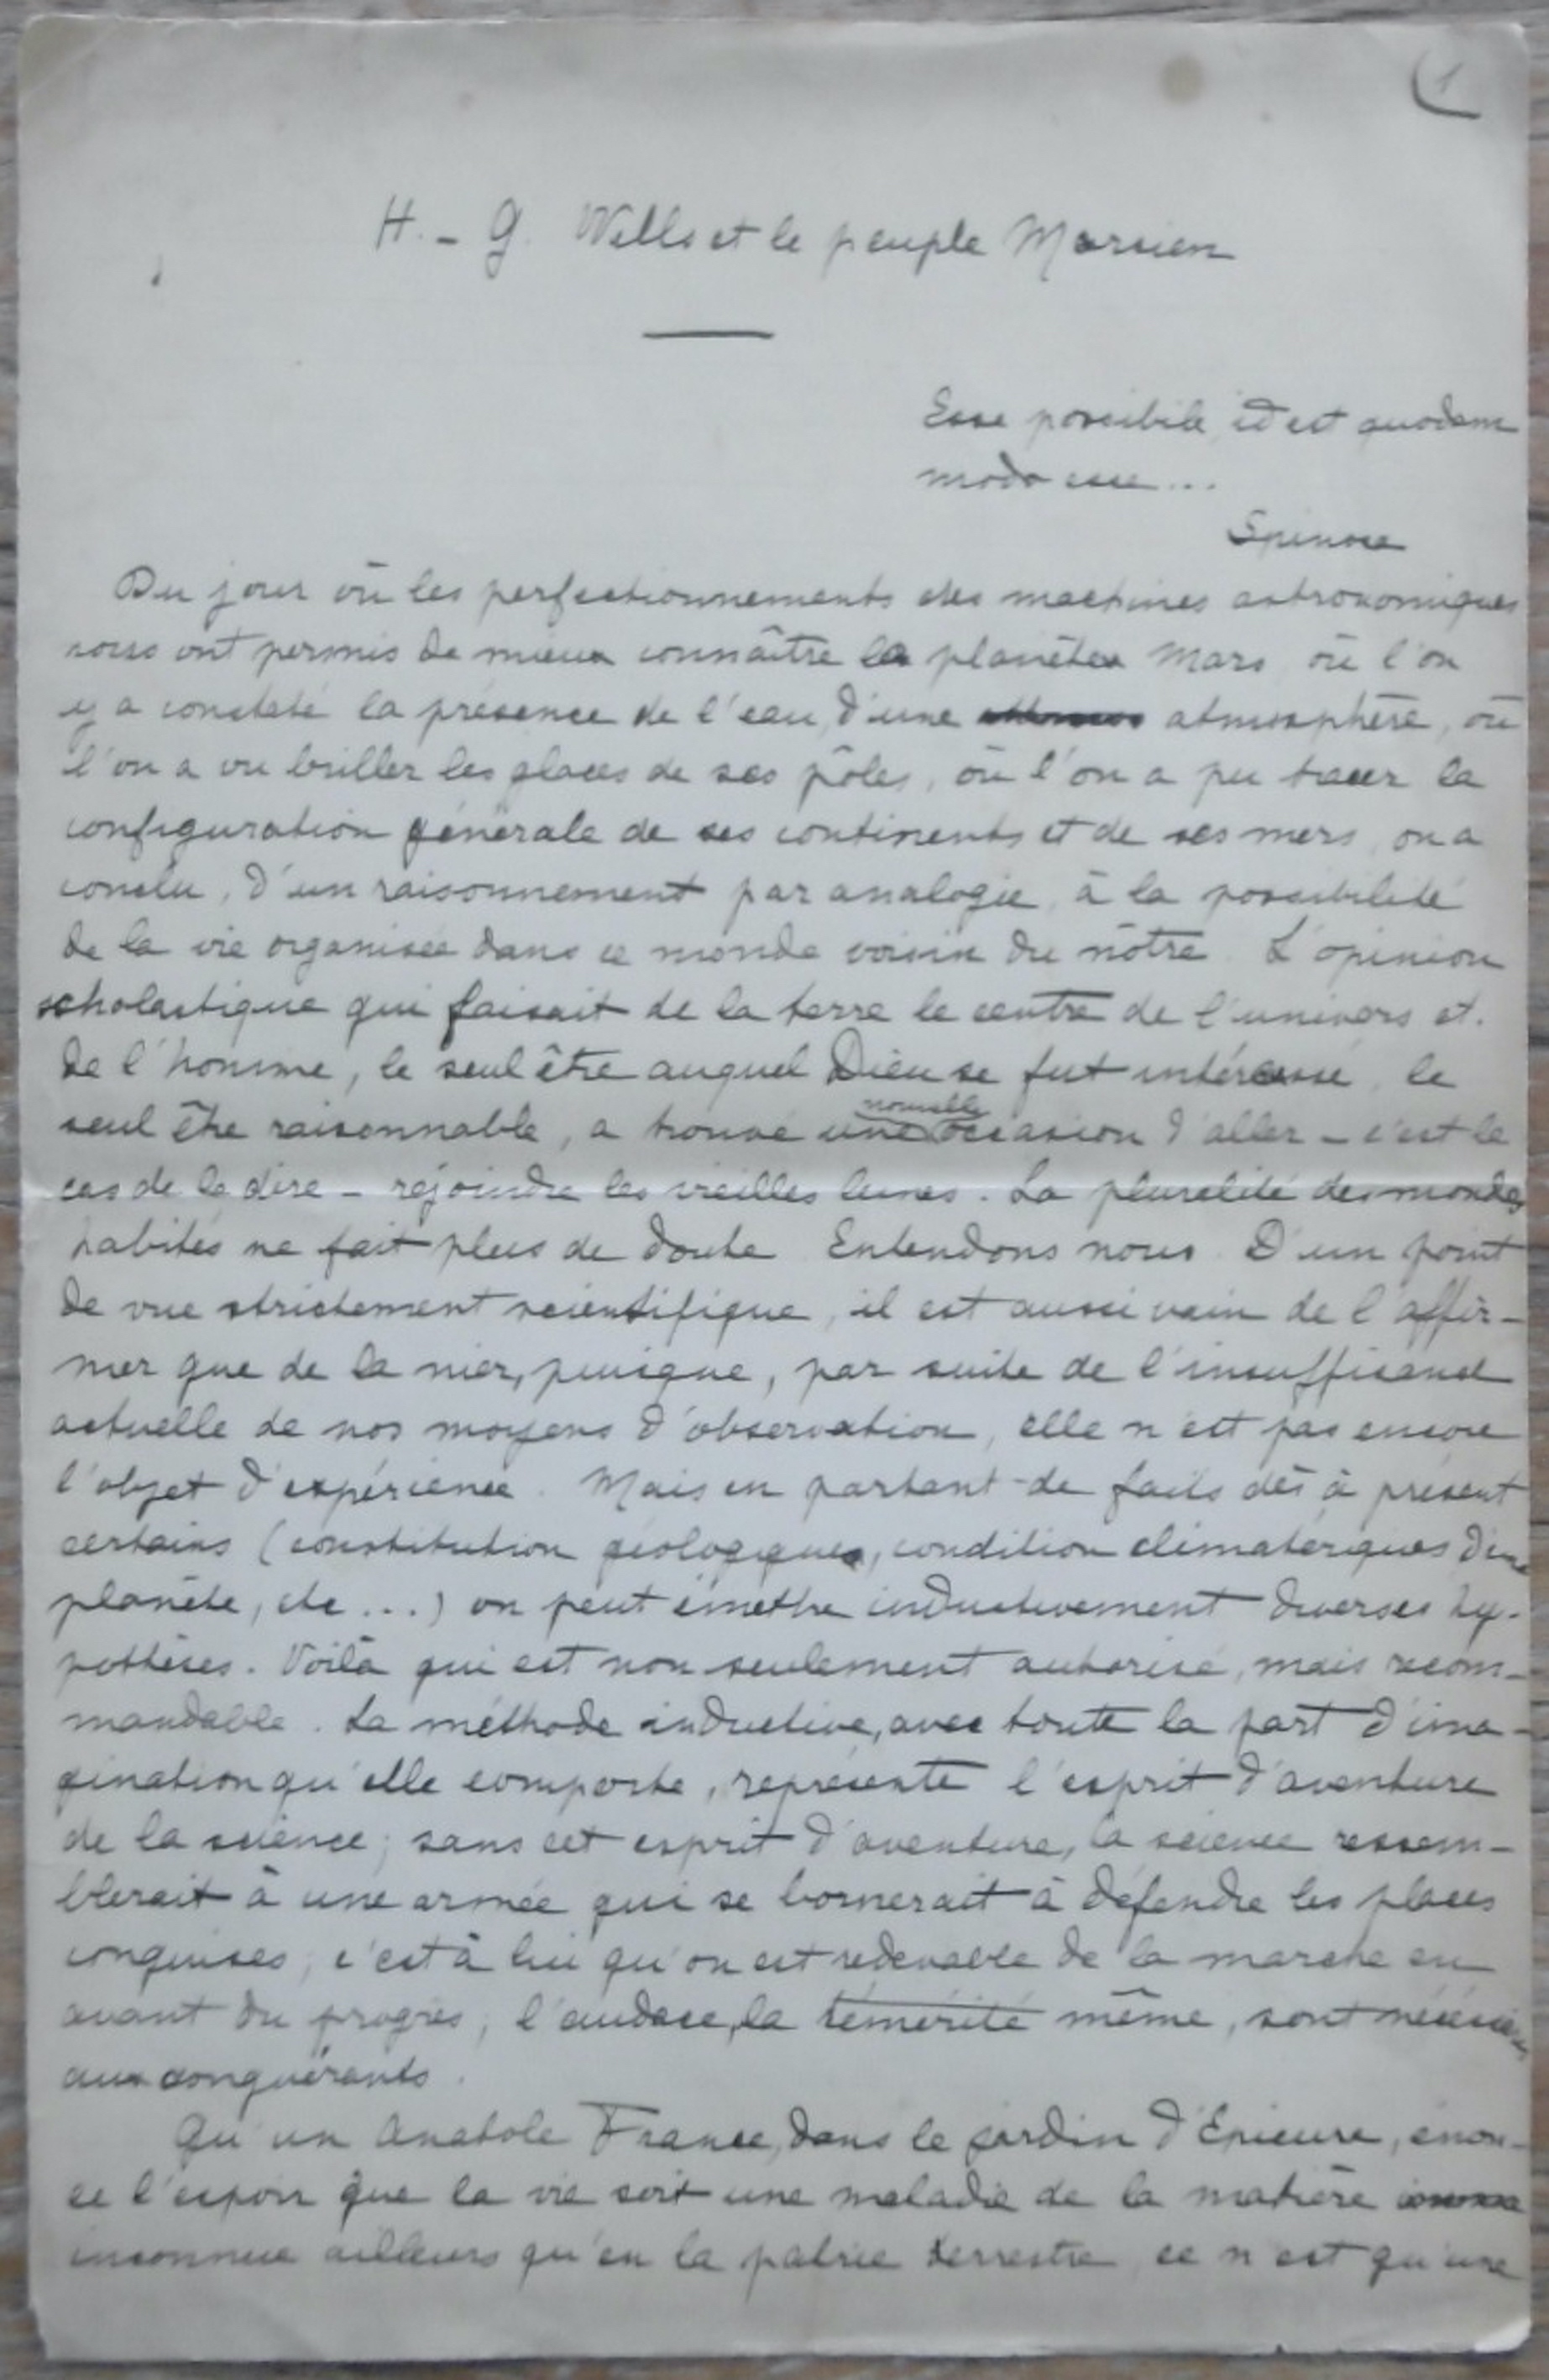 1
H. - G. Wells et le peuple Marsien
Esse possibile, id est quodam
modo esse...
Spinoza
Du jour où les perfectionnements des machines astronomiques
nous ont permis de mieux connaître la planète Mars, où l'on
y a constaté la présence de l'eau, d'une atmosphère, où
l'on a vu briller les glaces de ses pôles, où l'on a pu tracer la
configuration générale de ses continents et de ses mers, on a
conclu, d'un raisonnement par analogie, à la possibilité
de la vie organisée dans ce monde voisin du nôtre. L'opinion
scholastique qui faisait de la terre le centre de l'univers et
de l'homme, le seul être auquel Dieu se fut intéressé, le
seul être raisonnable, a trouvé une nouvelle occasion d'aller - c'est le
cas de le dire - rejoindre les vieilles lunes. La pluralité des mondes
habités ne fait plus de doute. Entendons nous. D'un point
de vue strictement scientifique, il est aussi vain de l'affir-
mer que de la nier, puisque, par suite de l'insuffisance
actuelle de nos moyens d'observation, elle n'est pas encore
l'objet d'expérience. Mais en partant de faits dès à présent
certains (constitution géologique, condition climatériques d'une
planète, etc...) on peut émettre inductivement diverses hy-
pothèses. Voilà qui est non seulement autorisé, mais recom-
mandable. La méthode inductive, avec toute la part d'ima-
gination qu'elle comporte, représente l'esprit d'aventure
de la science; sans cet esprit d'aventure, la science ressem-
blerait à une armée qui se bornerait à défendre les places
conquises; c'est à lui qu'on est redevable de la marche en
avant du progrès; l'audace, la témérité même, sont nécessaires
aux conquérants.
Qu'un Anatole France, dans le jardin d'Epicure, énon-
ce l'espoir que la vie soit une maladie de la matière
inconnue ailleurs qu'en la patrie terrestre, ce n'est qu'une